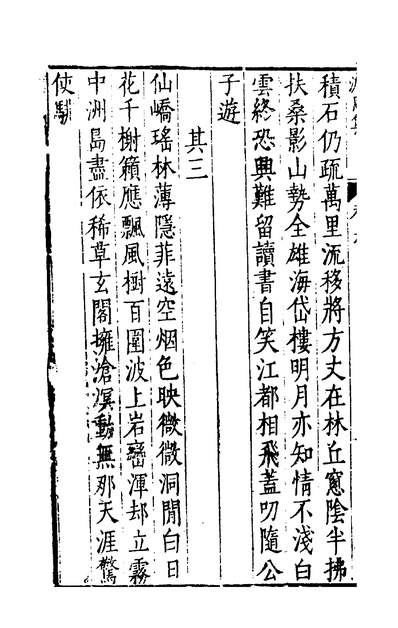 積石仍疏萬里流移將方丈在林丘窻陰半拂
扶桑影山勢全雄海岱樓明月亦知情不淺白
雲終恐興難留讀書自笑江都相飛蓋叨隨公
子遊
其三
仙嶠瑤林薄隱菲遠空烟色映微微洞閒白日
花千樹籟應飄風樹百圍波上岩巒渾却立霧
中洲島盡依稀草玄閣擁滄溟動無那天涯驚
使馴